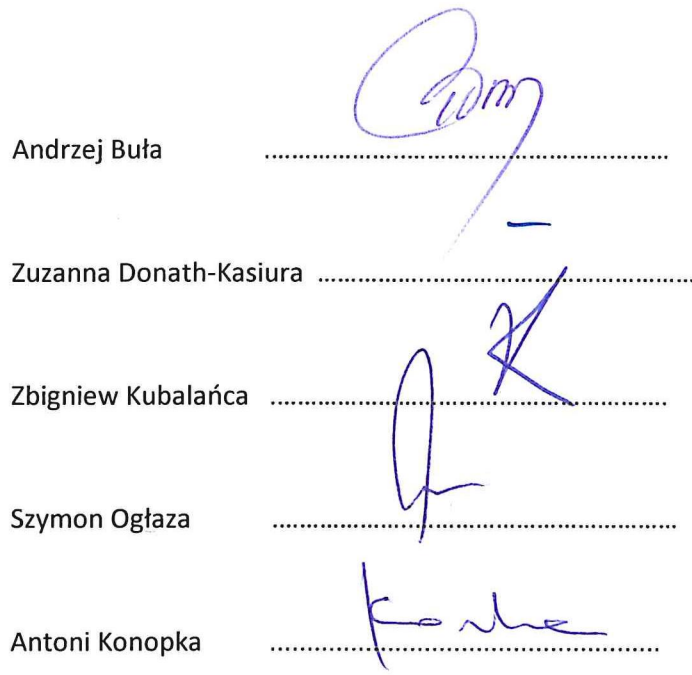 Andrzej Buła ..................................................
Zuzanna Donath-Kasiura ..................................................
Zbigniew Kubalańca ..................................................
Szymon Ogłaza ..................................................
Antoni Konopka ..................................................